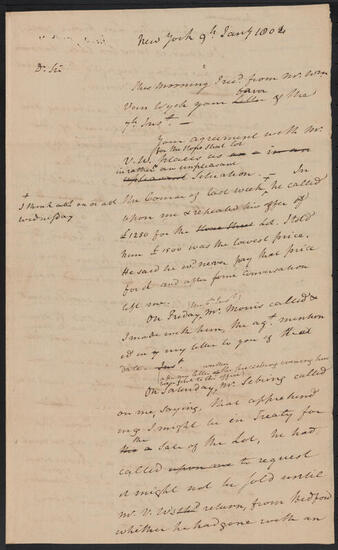 New York 9th. Jany 1802
Dr. Sir
This morning I recd. from Mr. Wm
Van Wyck your favor Letter of the
7th. Inst. —
Your agreement with Mr.
for the Hope Street lot
V. W. places us as a in an
in rather an unpleasant
unpleasant Situation. — In
+ I think abt. on or abt
Wednesday
the Course of last week + he called
upon me & repeated his offer of
£1250 for the Lot. I told
him £1500 was the lowest price.
He said he wd. never pay that price
for it and after some conversation
left me.
On Friday, Mr. Morris called &
I made with him, the agt. mention
ed in my letter to you of that
date Inst.
On Saturday, Mr. Sebring called
on me, saying, that apprehend
ing I might be in Treaty for
the
a Sale of the Lot, he had
called upon me to request
it might not be sold until
Mr. V. W. return, from Bedford
whether he had gone with an